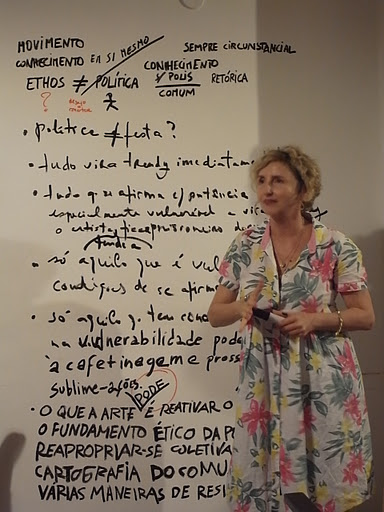 MOVIMENTO
CONHECIMENTO EM SI MESMO SEMPRE CIRCUNSTANCIAL
ETHOS ≠ POLÍTICA CONHECIMENTO
≠ POLIS RETÓRICA
COMUM
?
• política ≠ festa?
• tudo vira trendy imediatam
• tudo q se afirma c/ potência
especialmente vulnerável a
o artista
• só aquilo que é vul
condições de se afirm
• só aquilo q. tem cond
na vulnerabilidade pode
à cafetinagem e pross
sublime-ações.
PODE
• O QUE A ARTE É REATIVAR O
O FUNDAMENTO ÉTICO DA P
REAPROPRIAR-SE COLETIVA
CARTOGRAFIA DO COMU
VÁRIAS MANEIRAS DE RESI